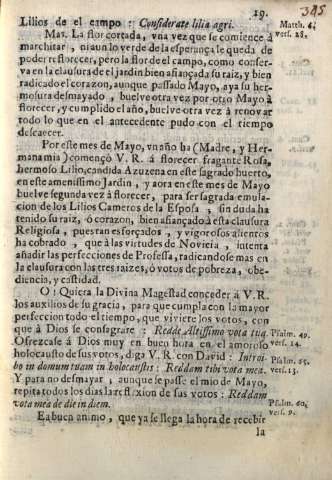 19.
345
Lilios de el campo : Considerate lilia agri.
Matth. 6.
vers. 28.
Mas. La flor cortada, vna vez que se comience à
marchitar , ni aun lo verde de la esperança le queda de
poder reflorecer, pero la flor de el campo, como conser-
va en la clausura de el jardin bien afiançada su raiz, y bien
radicado el coraçon, aunque passado Mayo, aya su her-
mosura desmayado , buelve otra vez por otro Mayo à
florecer, y cumplido el año, buelve otra vez à renovar
todo lo que en el antecedente pudo con el tiempo
descaecer.
Por este mes de Mayo, vn año ha (Madre, y Her-
mana mia) començò V. R. à florecer fragante Rosa,
hermoso Lilio, candida Azuzena en este sagrado huerto,
en este amenissimo Jardin , y aora en este mes de Mayo
buelve segunda vez à florecer, para ser sagrada emula-
cion de los Lilios Cameros de la Esposa , sin duda ha
tenido su raiz, ò coraçon, bien afiançado à esta clausura
Religiosa , pues tan esforçados , y vigorosos alientos
ha cobrado , que à las virtudes de Novicia , intenta
añadir las perfecciones de Professa, radicandose mas en
la clausura con las tres raizes, ò votos de pobreza , obe-
diencia, y castidad.
O! Quiera la Divina Magestad conceder à V. R.
los auxilios de su gracia , para que cumpla con la mayor
perfeccion todo el tiempo, que viviere los votos, con
que à Dios se consagrare : Redde Altissimo vota tua.
Psalm. 49.
vers. 14.
Ofrezcase à Dios muy en buen hora en el amoroso
holocausto de sus votos, diga V. R. con David : Introi-
bo in domum tuam in holocaustis : Reddam tibi vota mea.
Psalm. 65.
vers. 13.
Y para no desmayar , aunque se passe el mio de Mayo,
repita todos los dias la reflexion de sus votos : Reddam
vota mea de die in diem.
Psalm. 60.
vers. 9.
Ea buen animo , que ya se llega la hora de recebir
la